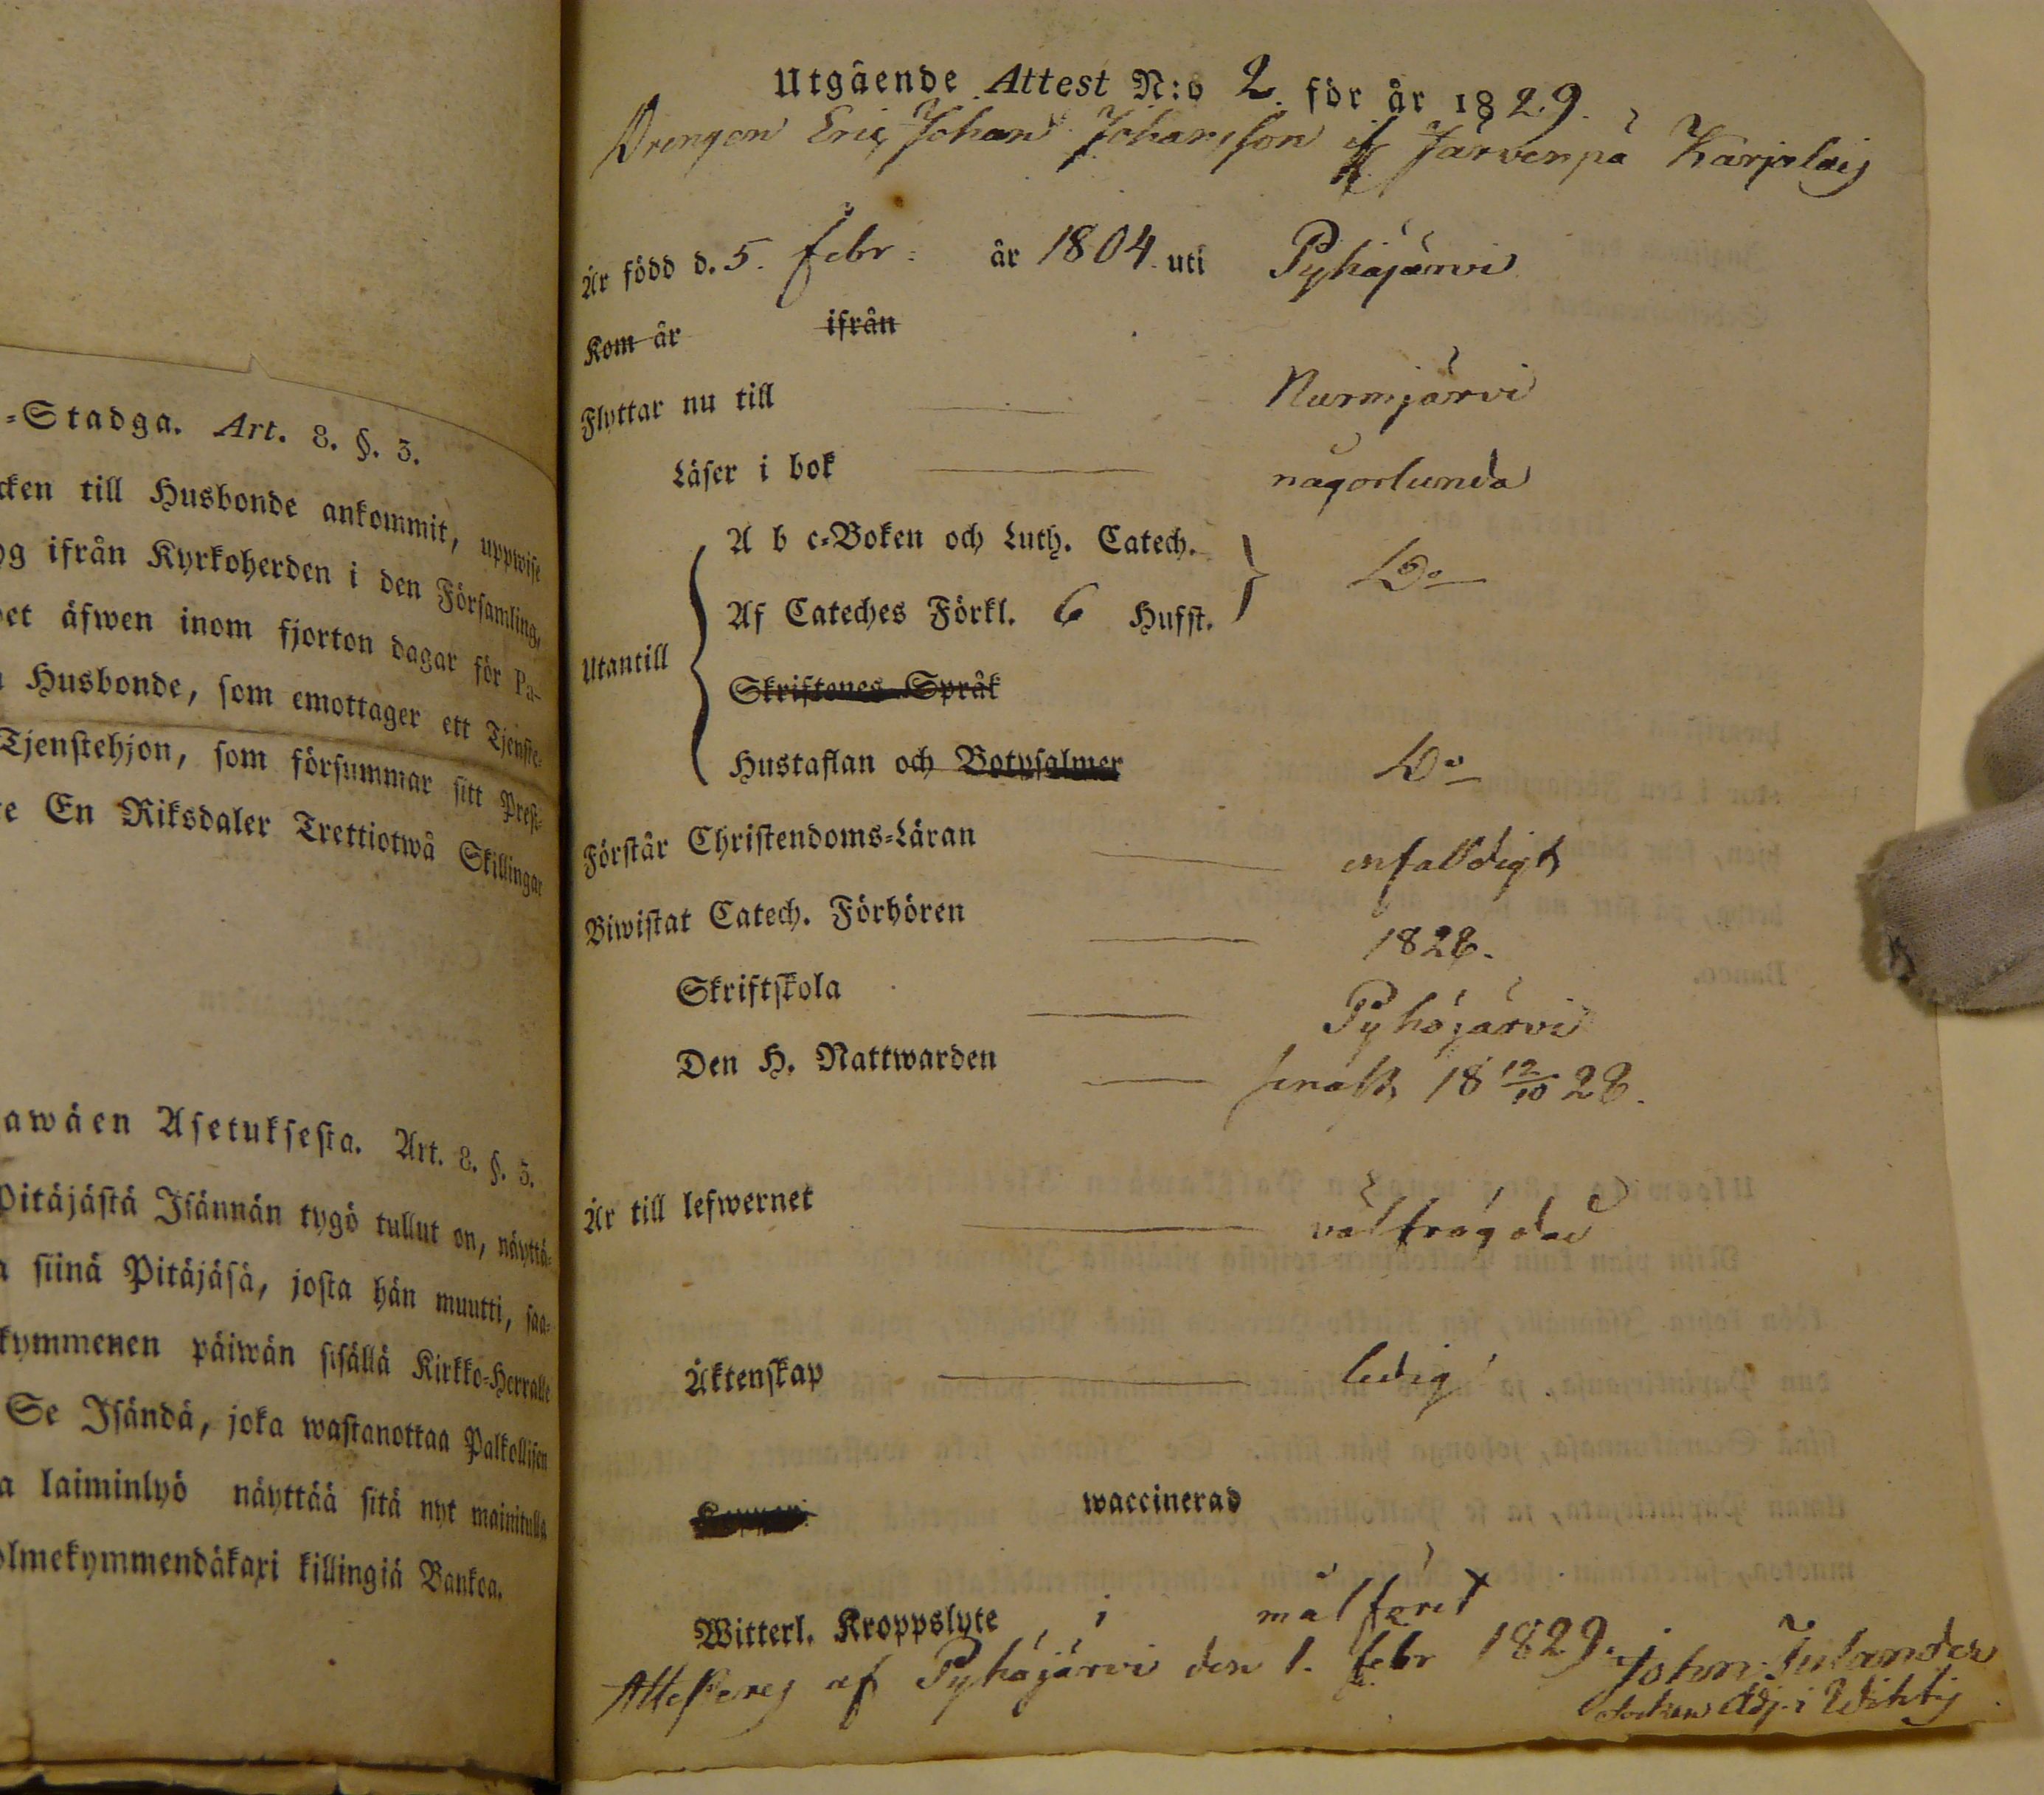 =Stadga. Art. 8. §. 3.
cken till Husbonde ankommit, uppwise
og ifrån Kyrkoherden i den Församling,
et äfwen inom fjorton dagar för Pa-
Husbonde, som emottager ett Tjenste-
Tjenstehjon, som försummar sitt Prest-
e En Riksdaler Trettiotwå Skillingar
awäen Asetuksesta. Art. 8. §. 3.
Pitäjästä Isännän tygö tullut on, näyttä-
siinä Pitäjäsä, josta hän muutti, saa-
kymmenen päiwän sisällä Kirkko-Herralle
Se Isändä, joka wastanottaa Palkollisen
a laiminlyö näyttää sitä nyt mainitulla
olmekymmendäkaxi killingiä Bankoa.
Utgående Attest N:o 2. för år 1829.
Drengen Eric Johan Johansson if Järvenpä Karjelaij
Är född d. 5. febr: år 1804. uti Pyhäjärvi
Kom år ifrån
Flyttar nu till Nurmjärvi
Läser i bok någorlunda
Utantill
A b c-Boken och Luth. Catech.
Af Cateches Förkl. 6 Hufst.
Do
Skriftenes Språk
Hustaflan och Botpsalmer Do
Förstår Christendoms-Läran enfalldigt
Biwistat Catech. Förhören 1828.
Skriftskola Pyhäjärvi
Den H. Nattwarden senast 18 12/10 28.
Är till lefwernet välfrägdad
Äktenskap ledig
waccinerad
Witterl. Kroppslyte i målföret
Attesteras af Pyhäjärvi den 1. febr 1829. John: Julander
Socken Adj. i Wihtij